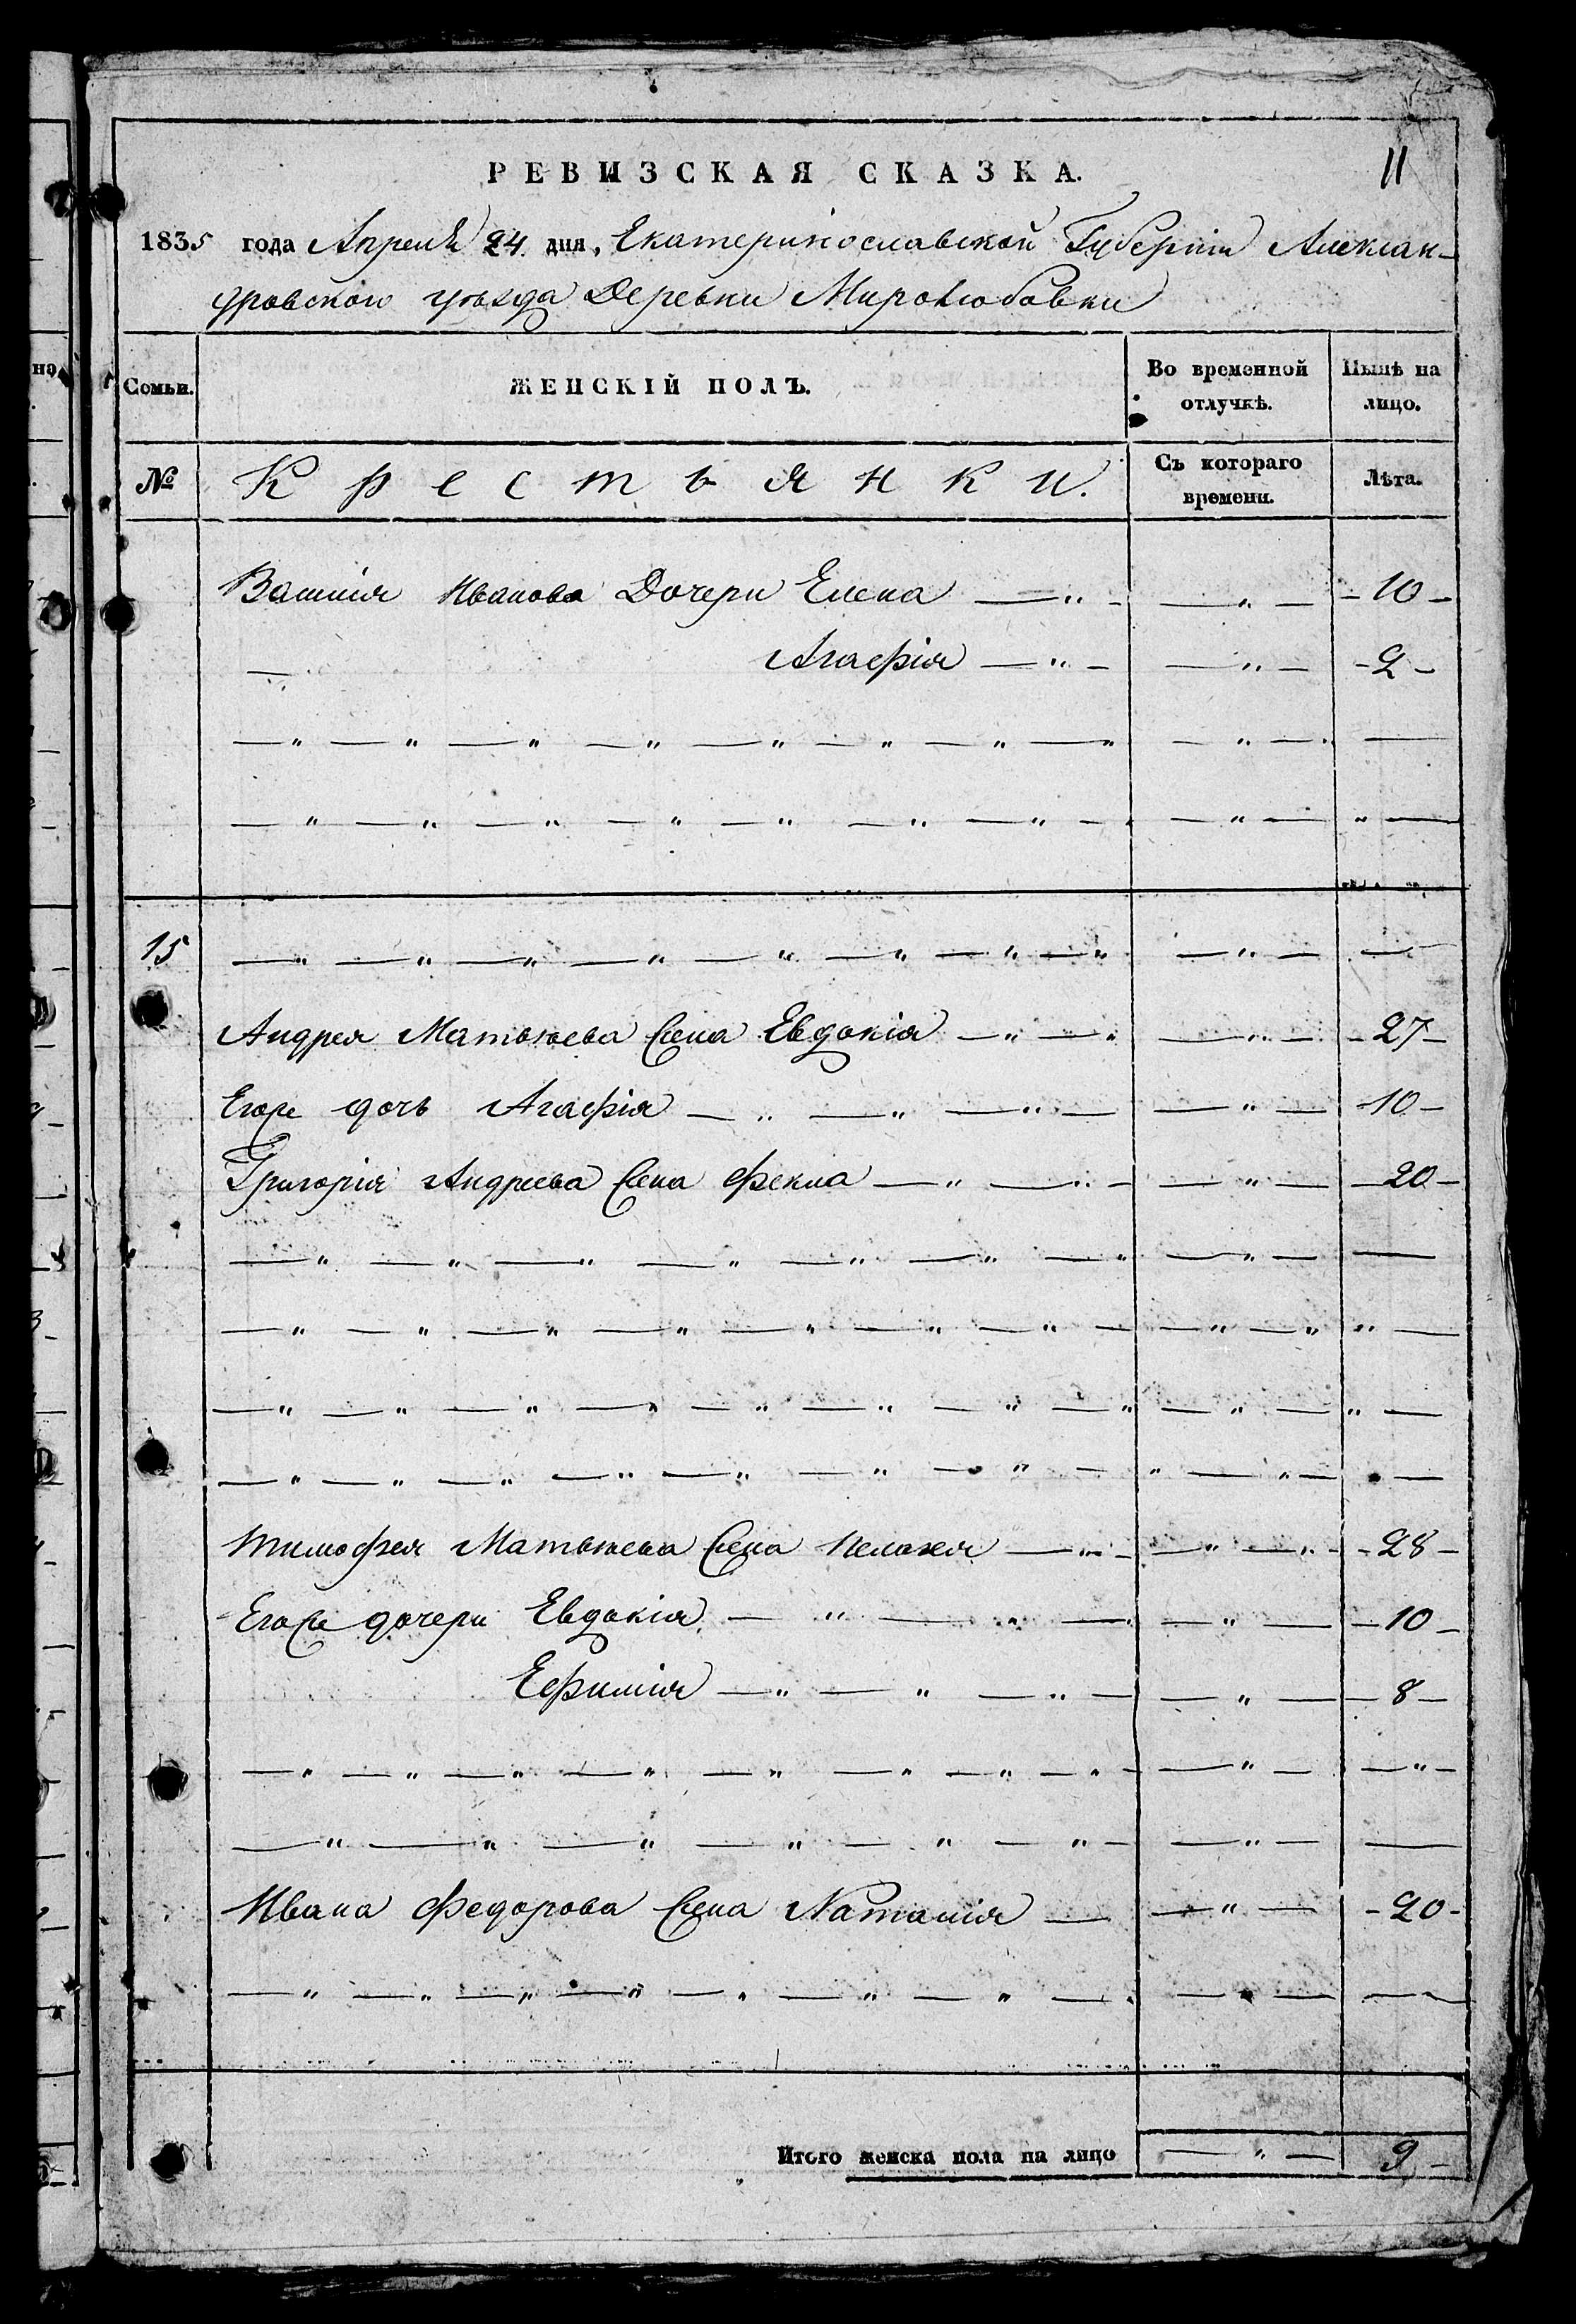 РЕВИЗСКАЯ СКАЗКА.
11
1835 года Апреля 24 дня, Екатеринославской Губерніи Алексан-
дровского уѣзда Деревни Миролюбовки
но
Семьи.
ЖЕНСКІЙ ПОЛЪ.
Во временной отлучкѣ.
Нынѣ на лицо.
№
Крестьянки.
Съ котораго времени.
Лѣта.
Иванова Дочери Елена — " — — " — - 10 -
Агафія — " — — " — - 2 -
15
Андрея Матвѣева жена Евдокія — " — " — " — - 27 -
Его же дочь Агафія — " — " — " — — " — - 10 -
Григорія Андреева жена Фекла — " — " — — " — - 20 -
Тимофея Матвѣева жена Пелагея — " — — " — - 28 -
Его же дочери Евдокія — " — " — — " — - 10 -
Ефимія — " — " — " — — " — - 8 -
Ивана Федорова жена Наталія — — " — - 20 -
Итого женска пола на лицо — " — 9 -